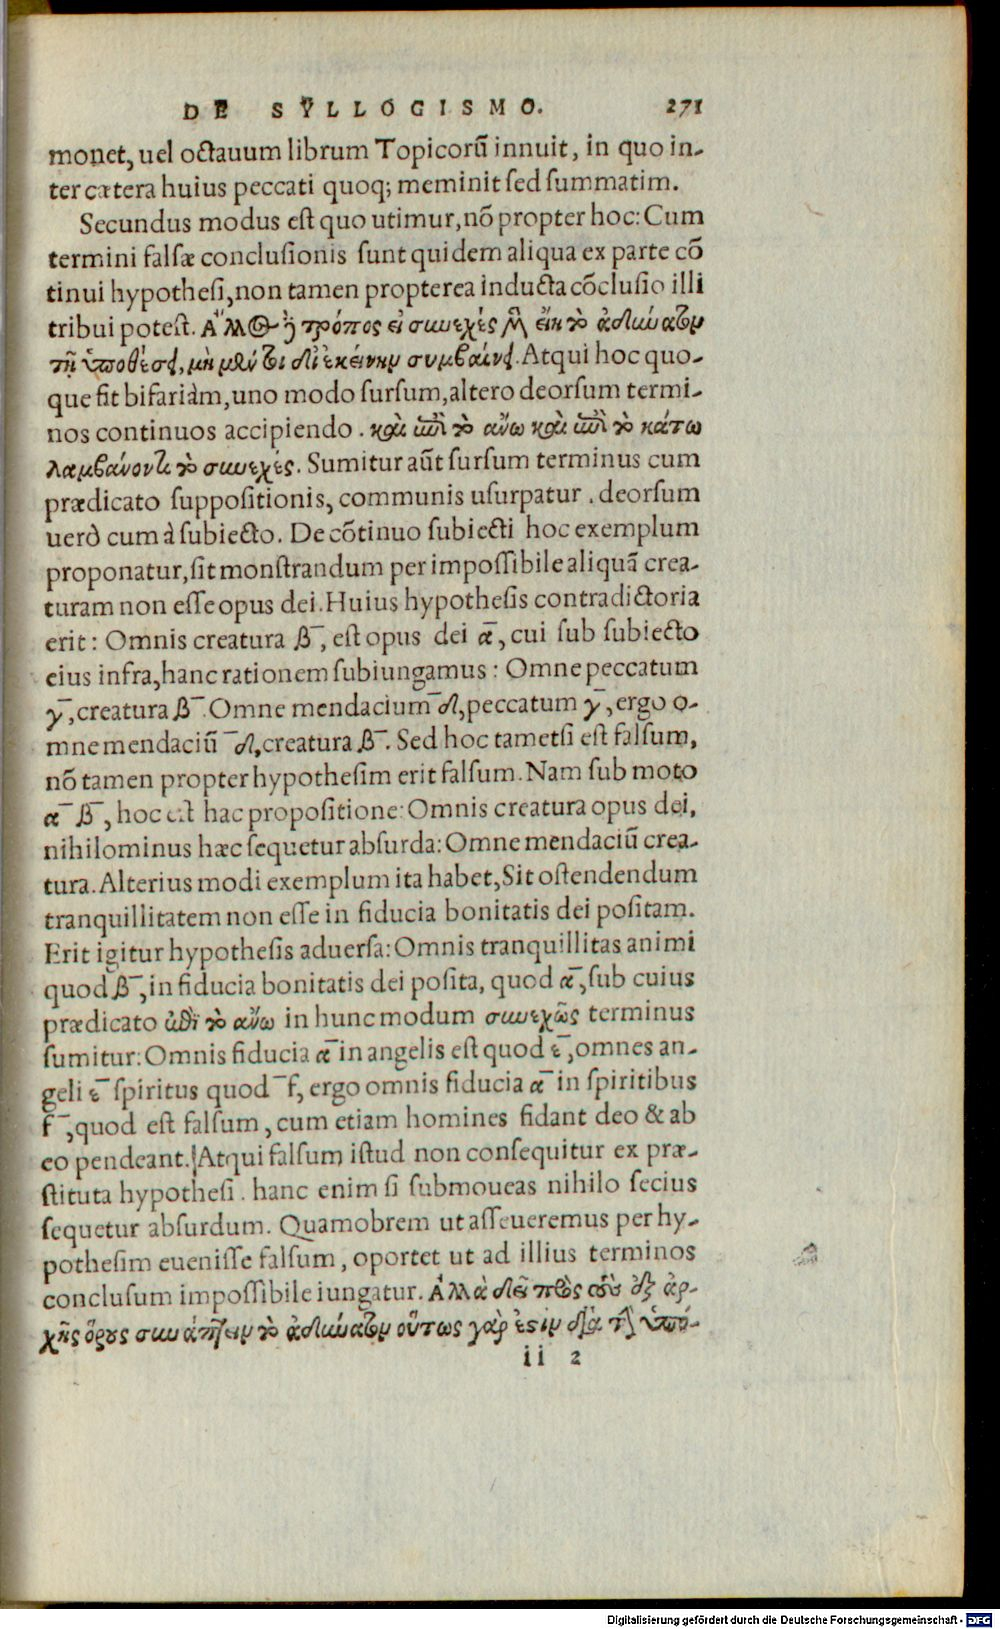 DE SYLLOGISMO. 271
monet, uel octauum librum Topicorū innuit, in quo in-
ter cætera huius peccati quoq; meminit sed summatim.
Secundus modus est quo utimur, nō propter hoc: Cum
termini falsæ conclusionis sunt quidem aliqua ex parte cō
tinui hypothesi, non tamen propterea inducta cōclusio illi
tribui potest. Ἄλλος ἢ τρόπος εἰ συνεχὲς μὲν εἴη τὸ ἀδύνατον
τῇ ὑποθέσει, μὴ μέντοι δι' ἐκείνην συμβαίνει. Atqui hoc quo-
que fit bifariàm, uno modo sursum, altero deorsum termi-
nos continuos accipiendo. καὶ ἐπὶ τὸ ἄνω καὶ ἐπὶ τὸ κάτω
λαμβάνοντι τὸ συνεχές. Sumitur aūt sursum terminus cum
prædicato suppositionis, communis usurpatur. deorsum
uerò cum à subiecto. De cōtinuo subiecti hoc exemplum
proponatur, sit monstrandum per impossibile aliquā crea-
turam non esse opus dei. Huius hypothesis contradictoria
erit: Omnis creatura β̄, est opus dei ᾱ, cui sub subiecto
eius infra, hanc rationem subiungamus: Omne peccatum
γ̄, creatura β̄. Omne mendacium δ̄, peccatum γ̄, ergo o-
mne mendaciū δ̄, creatura β̄. Sed hoc tametsi est falsum,
nō tamen propter hypothesim erit falsum. Nam sub moto
ᾱ β̄, hoc est hac propositione: Omnis creatura opus dei,
nihilominus hæc sequetur absurda: Omne mendaciū crea-
tura. Alterius modi exemplum ita habet, Sit ostendendum
tranquillitatem non esse in fiducia bonitatis dei positam.
Erit igitur hypothesis aduersa: Omnis tranquillitas animi
quod β̄, in fiducia bonitatis dei posita, quod ᾱ, sub cuius
prædicato ἐπὶ τὸ ἄνω in hunc modum συνεχῶς terminus
sumitur: Omnis fiducia ᾱ in angelis est quod ε̄, omnes an-
geli ε̄ spiritus quod f̄, ergo omnis fiducia ᾱ in spiritibus
f̄, quod est falsum, cum etiam homines fidant deo & ab
eo pendeant. Atqui falsum istud non consequitur ex præ-
stituta hypothesi. hanc enim si submoueas nihilo secius
sequetur absurdum. Quamobrem ut asseueremus per hy-
pothesim euenisse falsum, oportet ut ad illius terminos
conclusum impossibile iungatur. Ἀλλὰ δεῖ πρὸς τοὺς ἐξ ἀρ-
χῆς ὅρους συνάπτειν τὸ ἀδύνατον οὕτως γὰρ ἔσται διὰ τὴν ὑπό-
ii 2
Digitalisierung gefördert durch die Deutsche Forschungsgemeinschaft - DFG